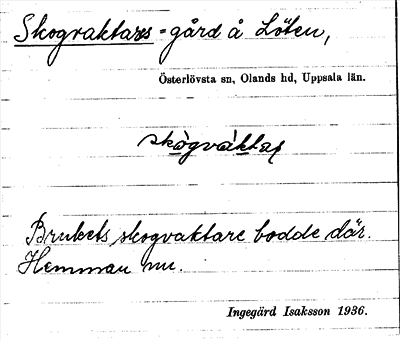 Skogvaktars-gård å Löten,
Österlövsta sn, Olands hd, Uppsala län.
skògvàktaṣ
Brukets skogvaktare bodde där.
Hemman nu.
Ingegärd Isaksson 1936.